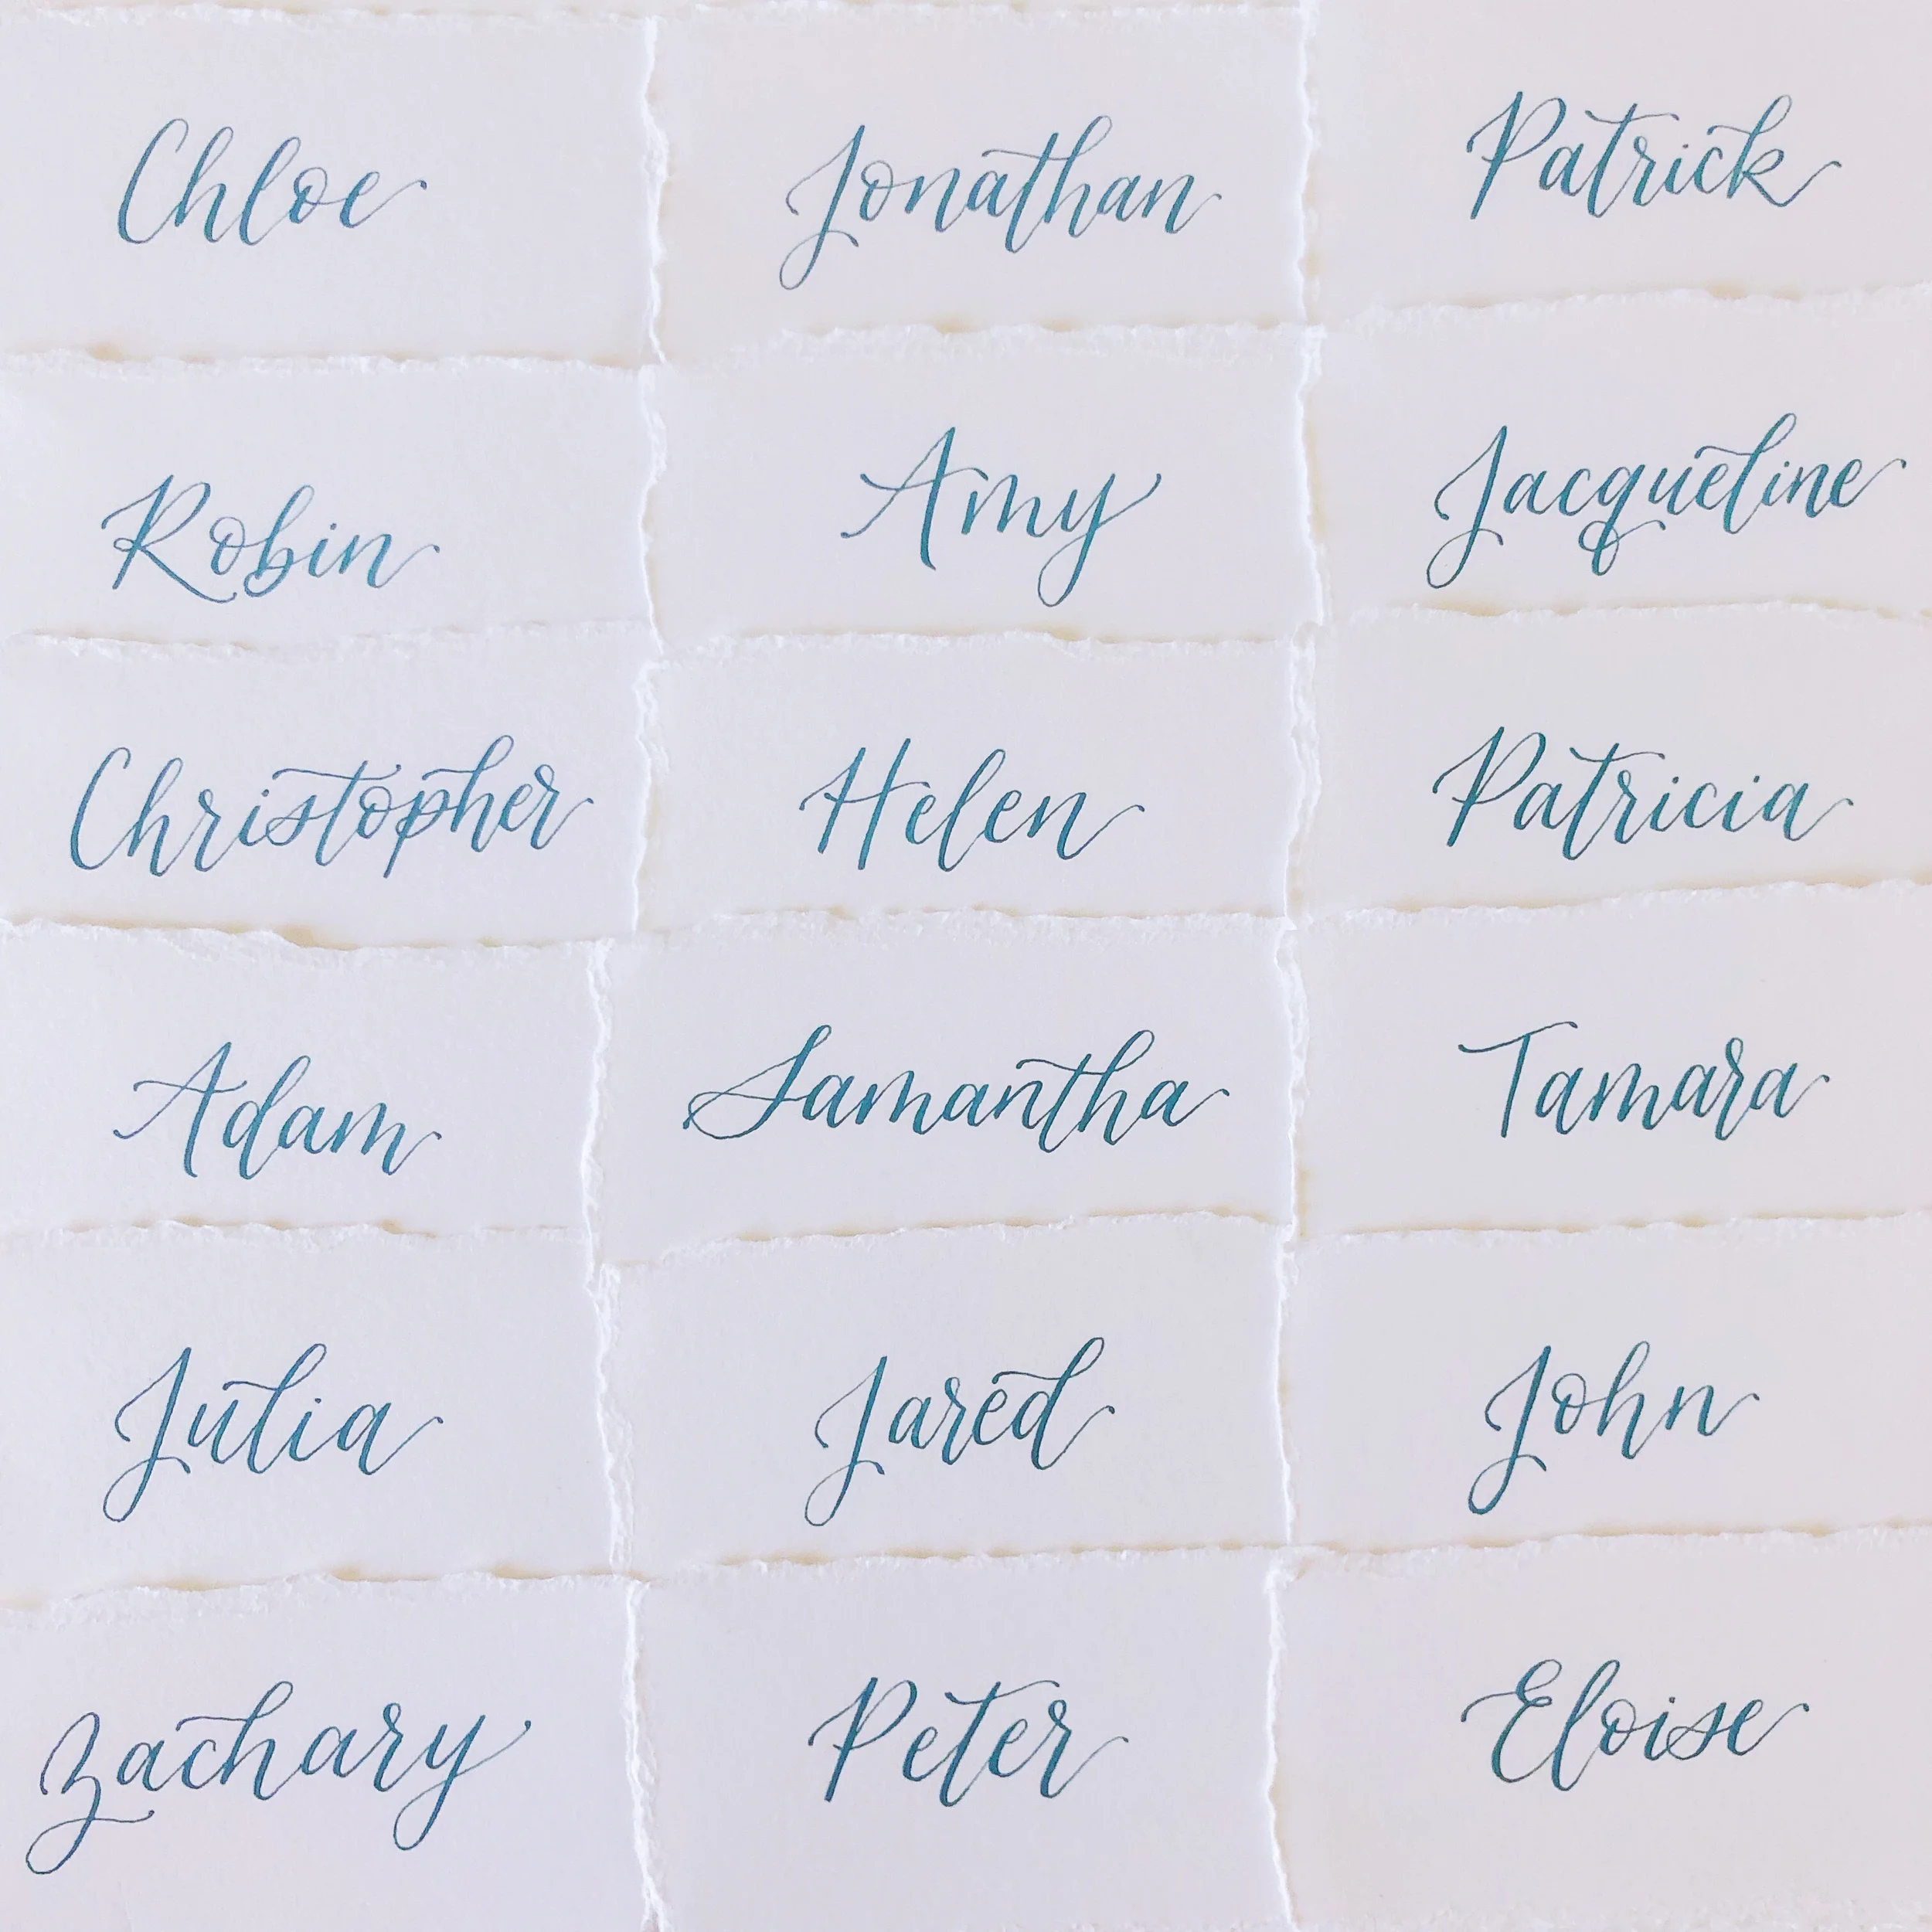 Chloe
Jonathan
Patrick
Robin
Amy
Jacqueline
Christopher
Helen
Patricia
Adam
Samantha
Tamara
Julia
Jared
John
Zachary
Peter
Eloise